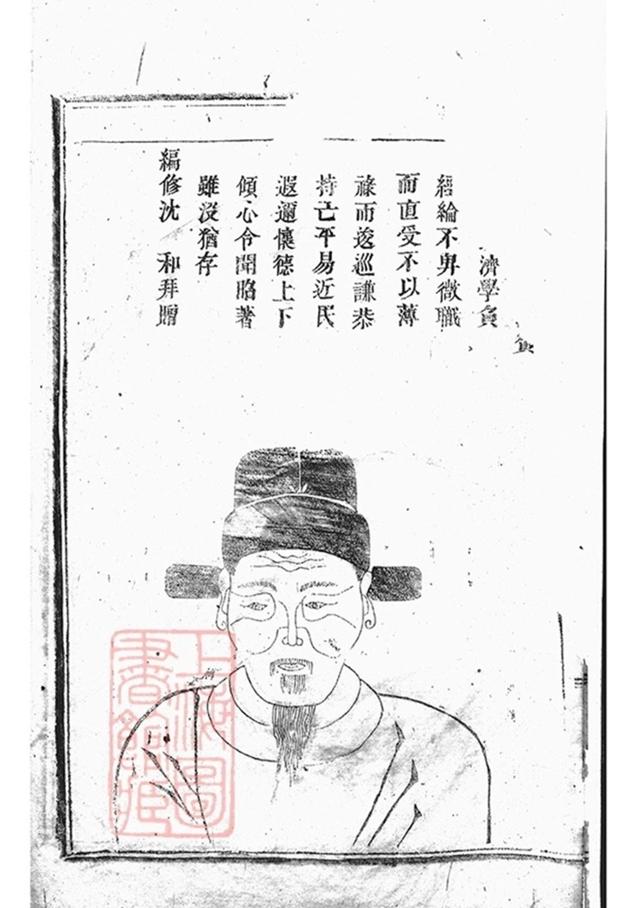 濟學貟
經綸不卑微職
而直受不以薄
祿而逡巡謙恭
持亡平易近民
遐邇懷德上下
傾心令聞昭著
雖沒猶存
編修沈 和拜贈
上海圖
書館藏